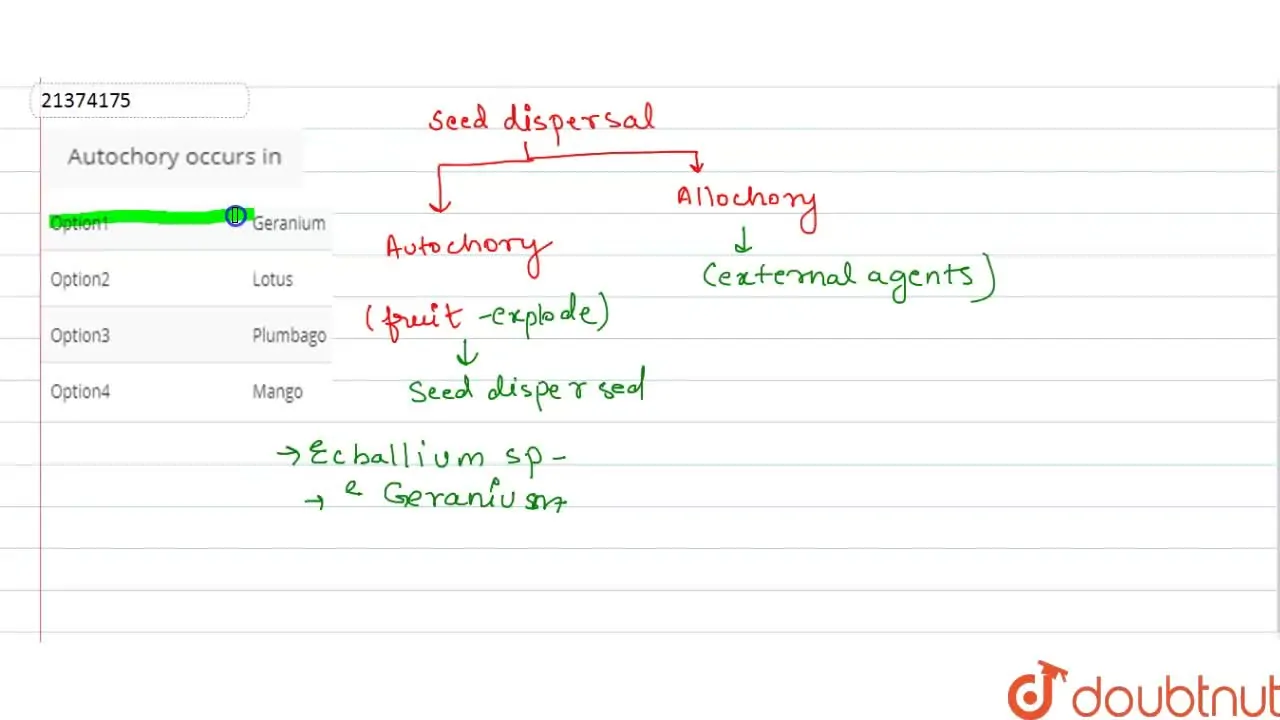 21374175
Autochory occurs in
Option1 Geranium
Option2 Lotus
Option3 Plumbago
Option4 Mango
Seed dispersal
Autochory
Allochory
(fruit -explode)
(external agents)
Seed dispersed
→ Ecballium sp -
→ Geranium
doubtnut